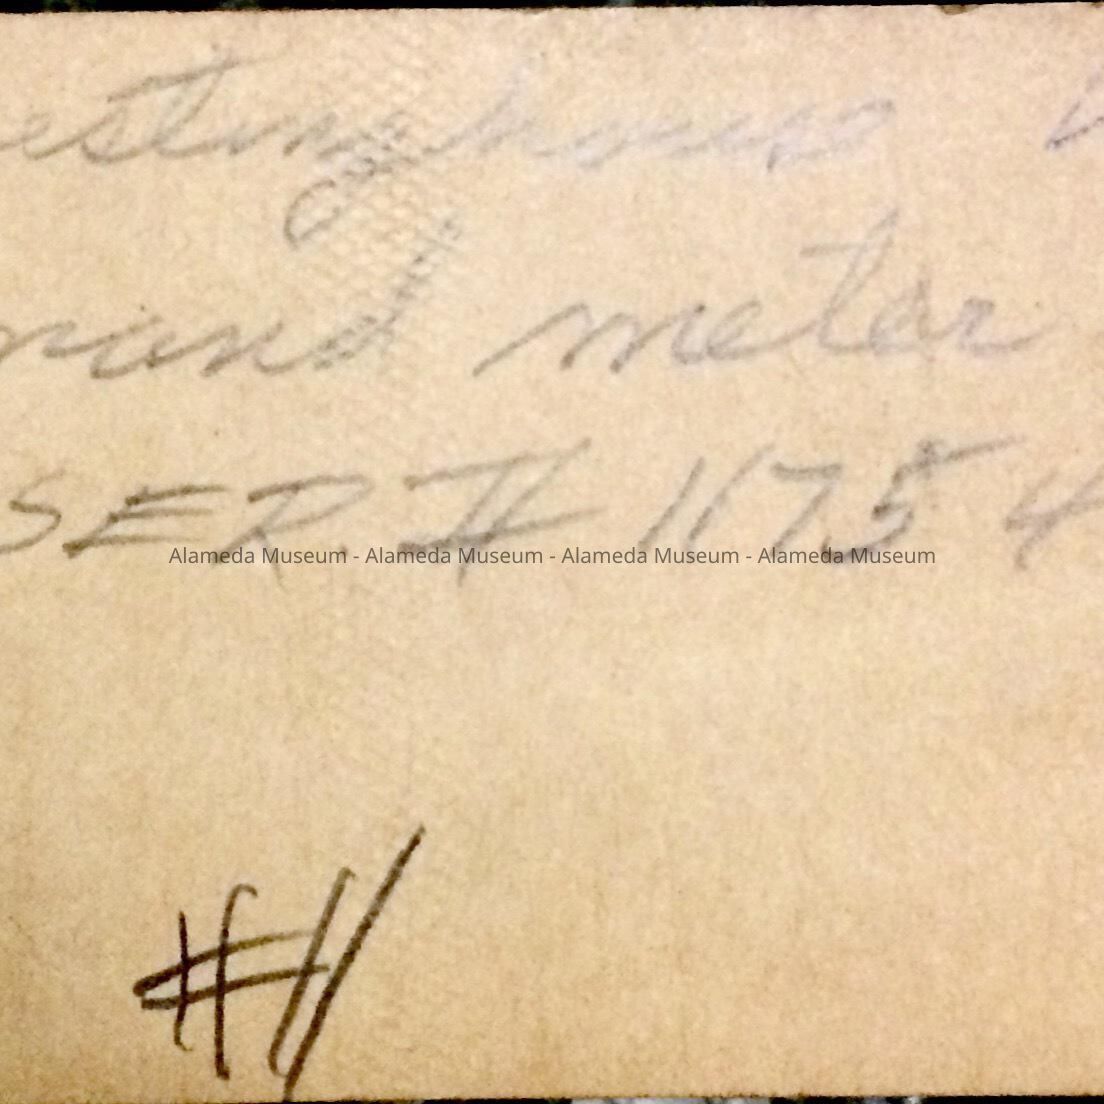 estinghouse
mand meter
SER. # 11754
Alameda Museum - Alameda Museum - Alameda Museum - Alameda Museum
#11